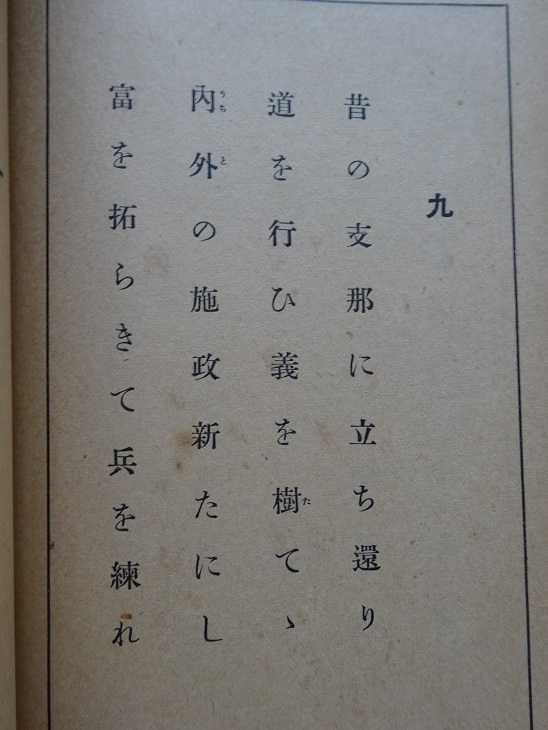 九
昔の支那に立ち還り
道を行ひ義を樹てゝ
内外の施政新たにし
富を拓らきて兵を練れ
うち
と
た